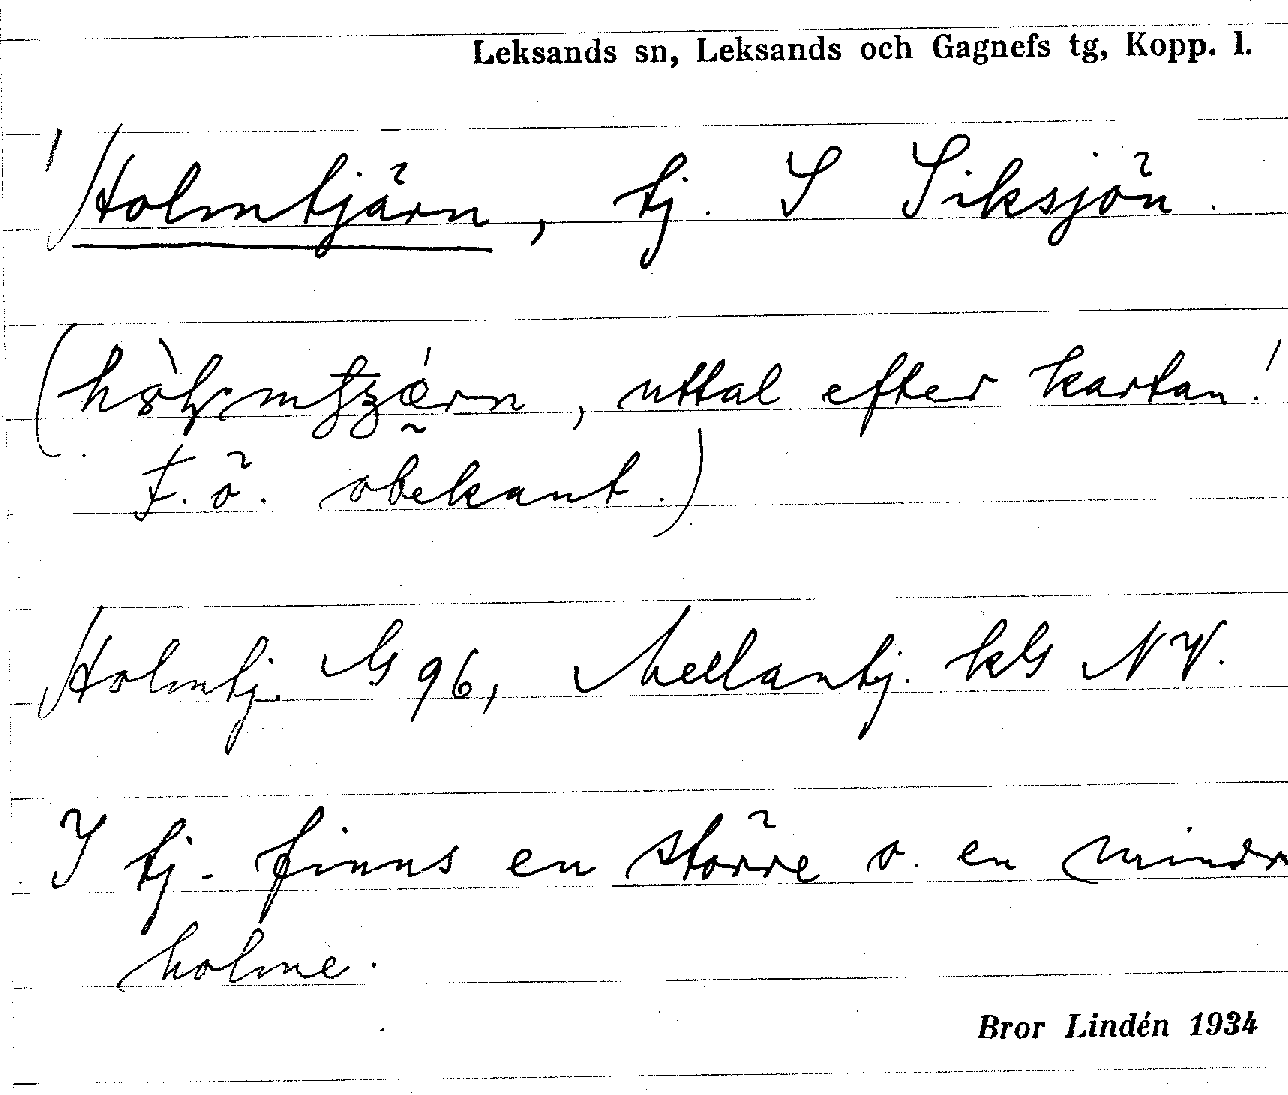 Leksands sn, Leksands och Gagnefs tg, Kopp. l.
Holmtjärn, tj. S Siksjön.
( , uttal efter kartan!
f. ö. obekant.)
Holmtj. G 96, Mellantj. kG NV.
I tj. finns en större o. en mindr
holme.
Bror Lindén 1934